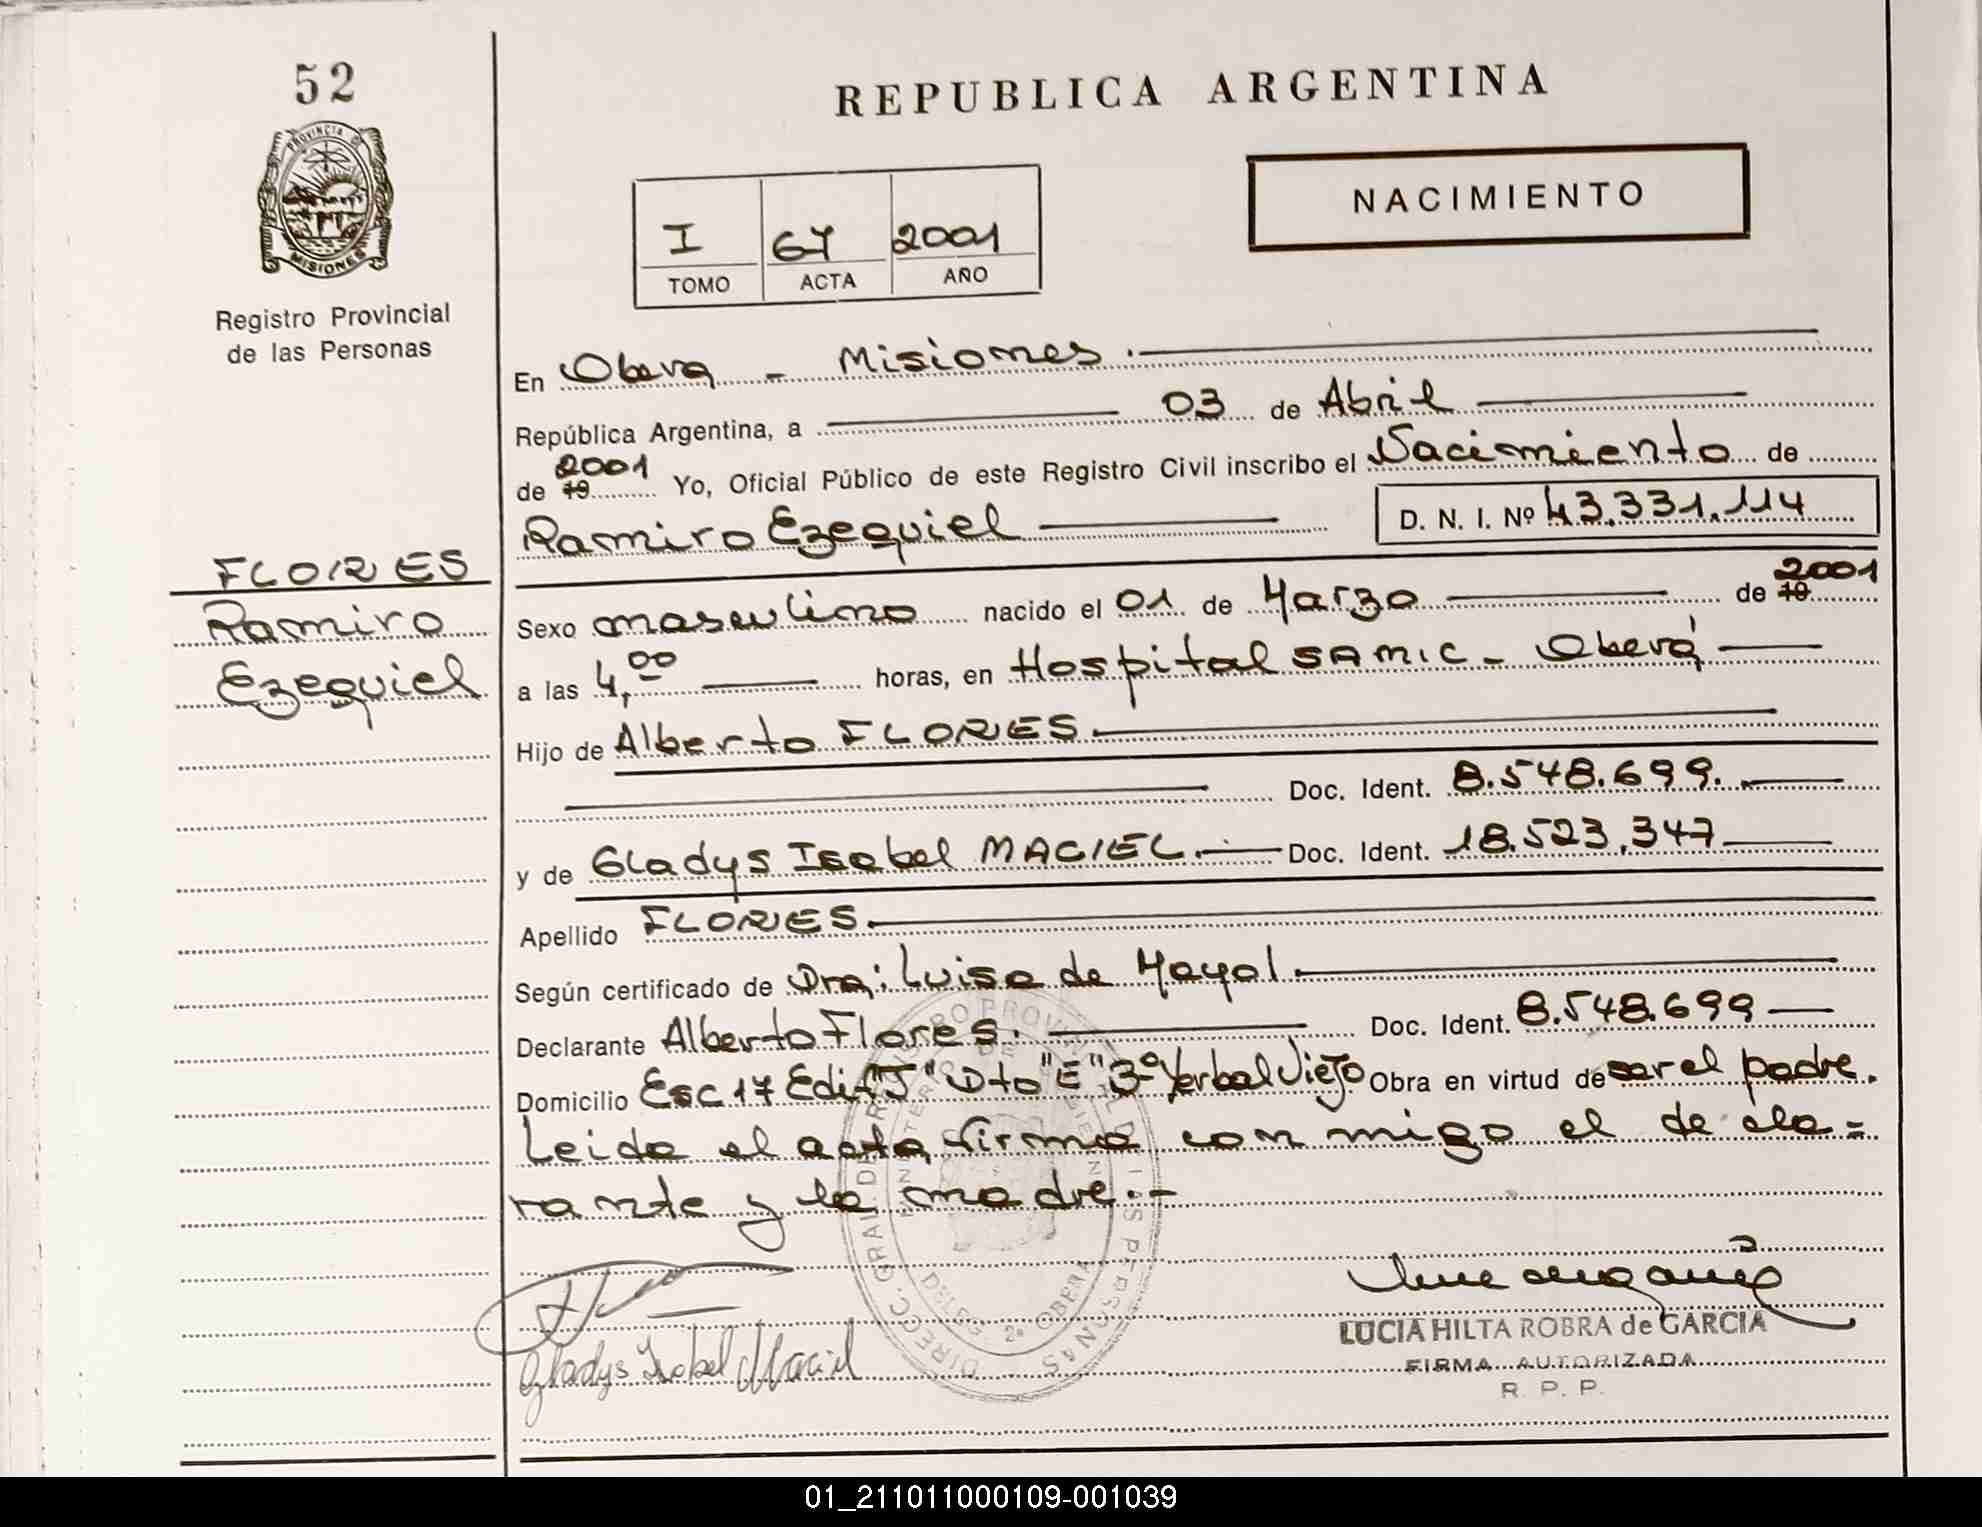 52
PROVINCIA DE
MISIONES
Registro Provincial
de las Personas
FLORES
Ramiro
Ezequiel
REPUBLICA ARGENTINA
NACIMIENTO
I 67 2001
TOMO ACTA AÑO
En Obera - Misiones.
República Argentina, a 03 de Abril
de 19 2001 Yo, Oficial Público de este Registro Civil inscribo el Nacimiento de
Ramiro Ezequiel D. N. I. Nº 43.331.114
Sexo masculino nacido el 01 de Marzo de 19 2001
a las 4,00 horas, en Hospital SAMIC - Oberá
Hijo de Alberto FLORES.
Doc. Ident. 8.548.699.
y de Gladys Isabel MACIEL. Doc. Ident. 18.523.347
Apellido FLORES.
Según certificado de Dra: Luisa de Mayol.
Declarante Alberto Flores. Doc. Ident. 8.548.699
Domicilio Esc 17 Edif "J" Dto "E" 3º Yerbal Viejo Obra en virtud de ser el padre.
Leida el acta, firma con migo el de cla=
rante y la madre.-
DIRECC. GRAL. DE REGISTRO PROVINCIAL DE LAS PERSONAS
DELEG. 2ª OBERA
Gladys Isabel Maciel
LUCIA HILTA ROBRA de GARCIA
FIRMA AUTORIZADA
R. P. P.
01_211011000109-001039